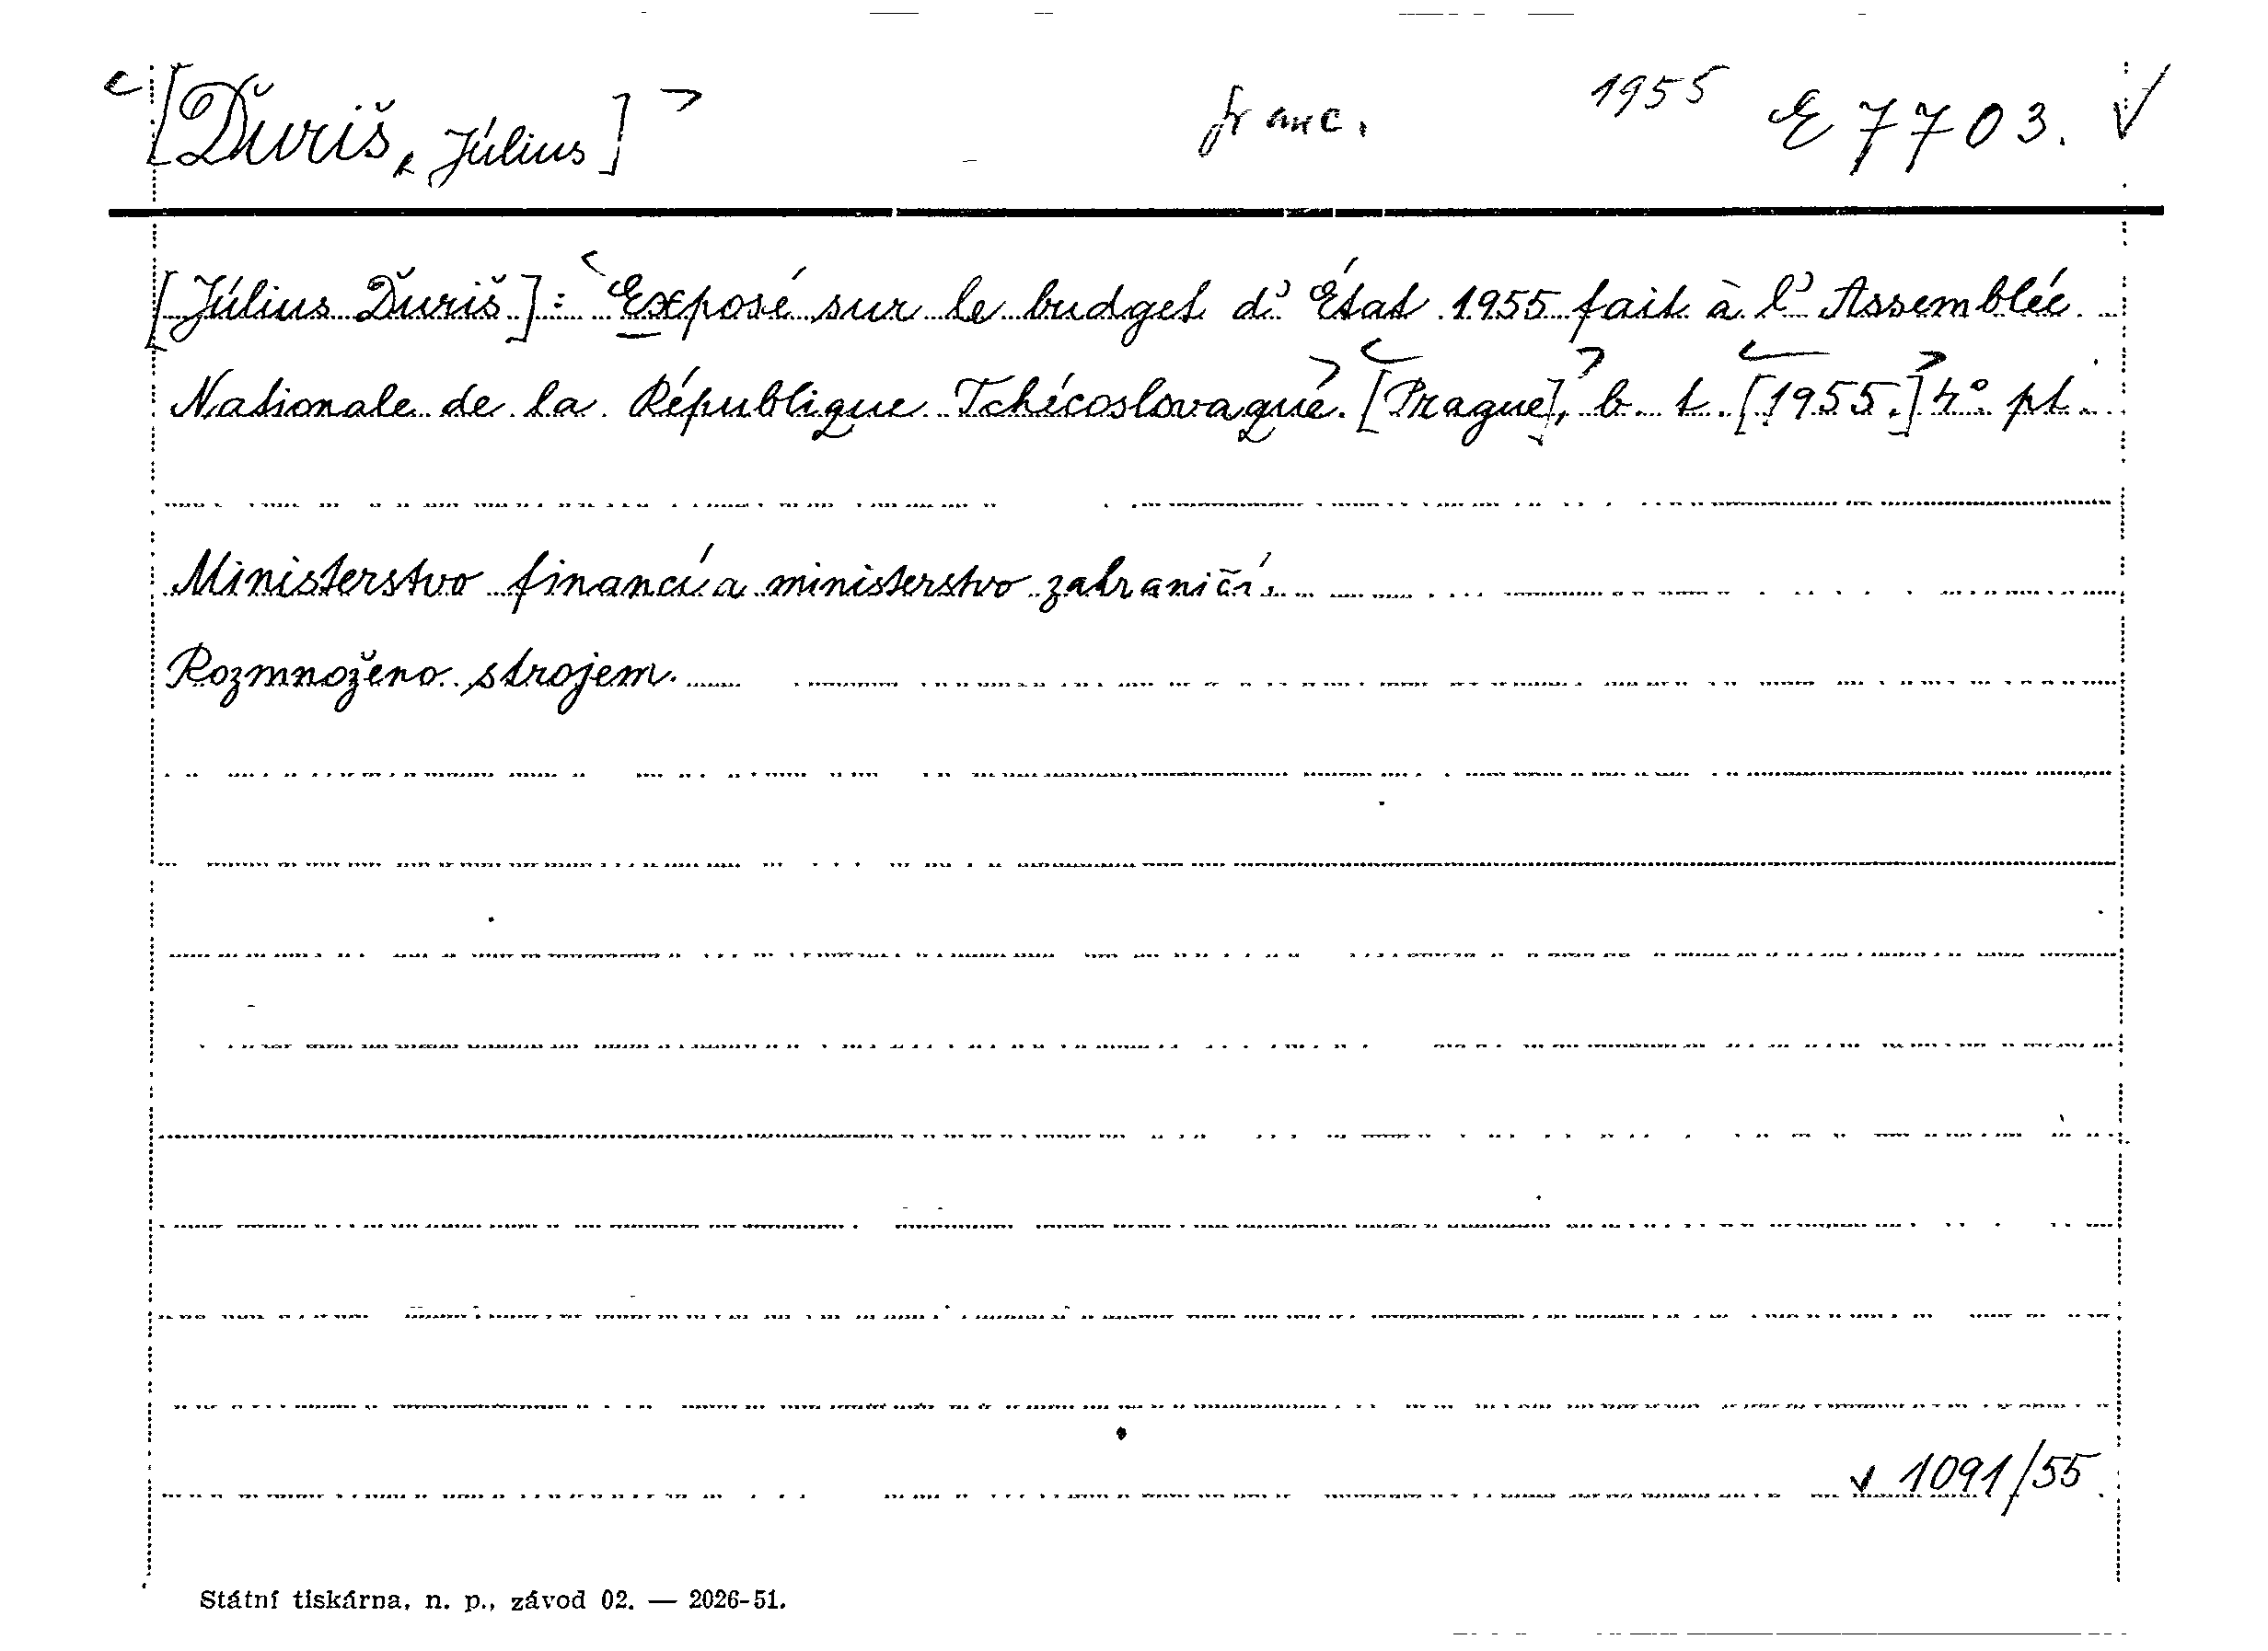 [Ďuriš, Július] franc. 1955 E 7703.
[Július Ďuriš]: Exposé sur le budget d'État 1955 fait à l'Assemblée
Nationale de la République Tchécoslovaque. [Prague], b. t. [1955.] 4° pt.
Ministerstvo financí a ministerstvo zahraničí.
Rozmnoženo strojem.
1091/55
Státní tiskárna, n. p., závod 02. — 2026-51.